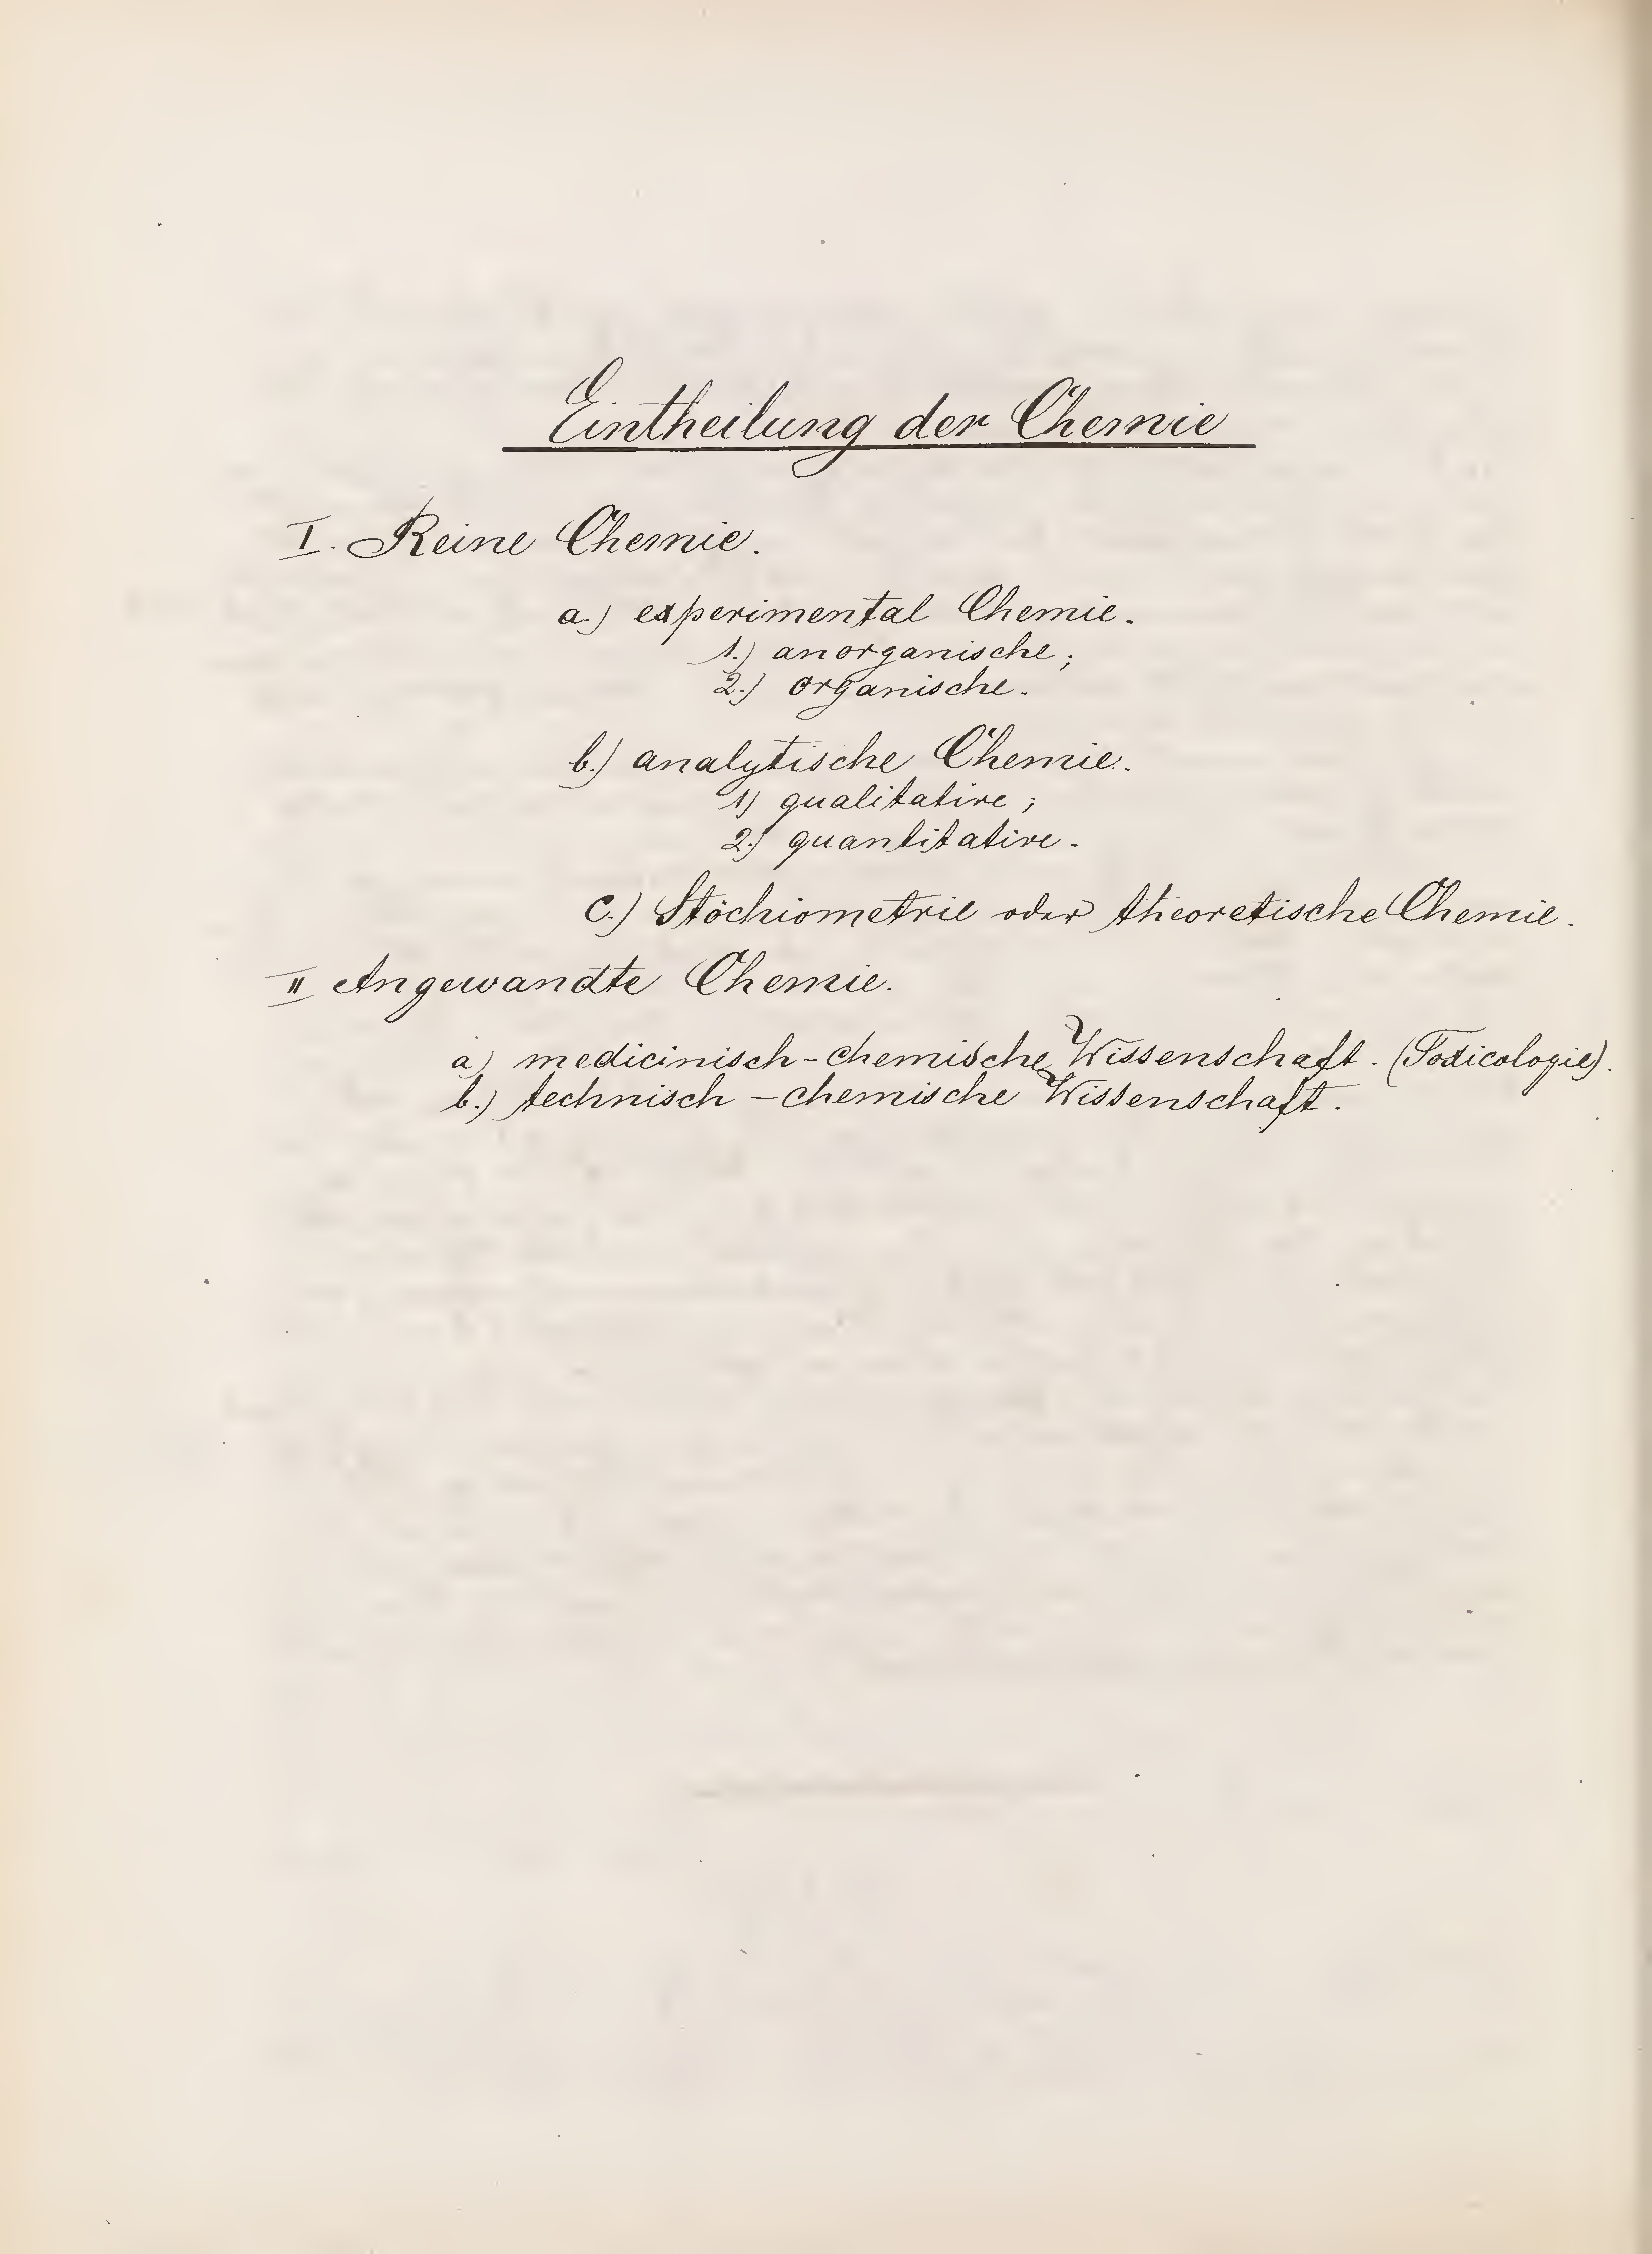 Eintheilung der Chemie
I. Reine Chemie.
a.) experimental Chemie.
1.) anorganische;
2.) organische.
b.) analytische Chemie.
1) qualitative;
2.) quantitative.
C.) Stöchiometrie oder theoretische Chemie.
II Angewandte Chemie.
a) medicinisch-chemische Wissenschaft. (Toxicologie).
b.) technisch-chemische Wissenschaft.